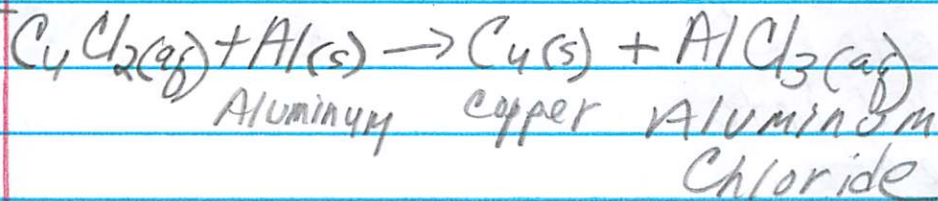 CuCl2(aq) + Al(s) → Cu(s) + AlCl3(aq)
Aluminum copper Aluminum
Chloride